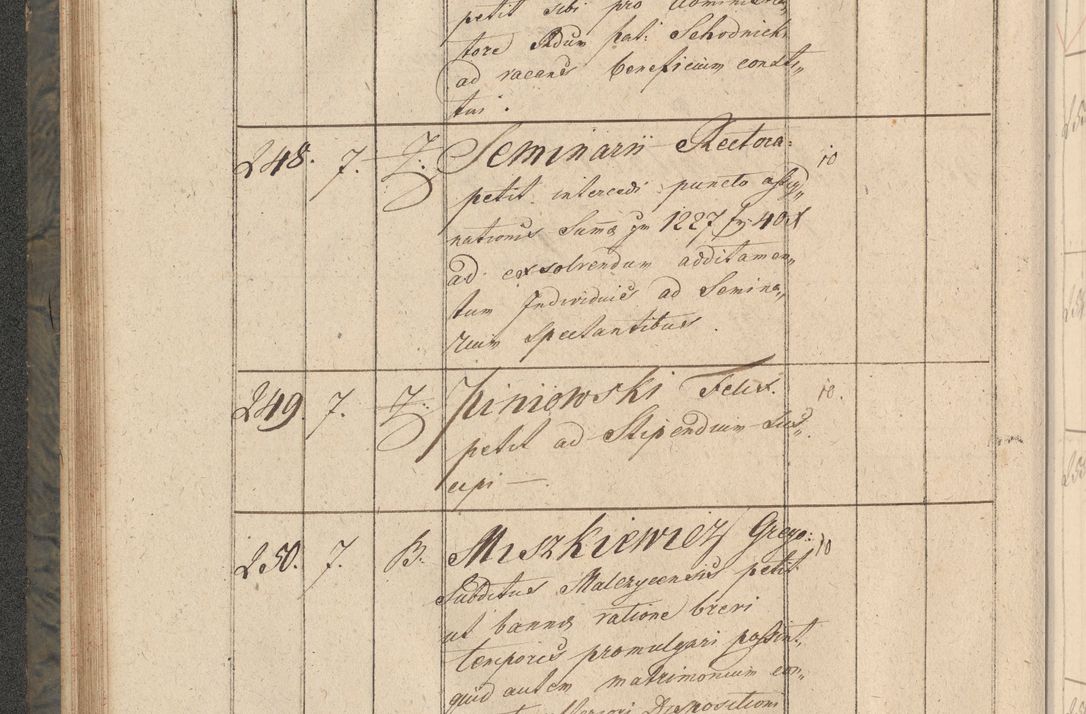 petit sibi pro
tore Adm pat: Schodnicki
ad vacans beneficium consti„
tui.
248. 7. Seminarii Rectora: 10
petit intercedi puncto assig„
nationis Summæ 1227 40 X
ad exsolvendum additamen„
tum Individuis ad Semina„
rium spectantibus.
249. 7. Piniowski Felix. 10.
petit ad Stipendium sus„
cipi —.
250. 7. B. Miszkiewicz Grego: 10
Subditus petit
ut bannis ratione brevi
temporis promulgari possint,
quid autem matrimonium con„
Dispositioni